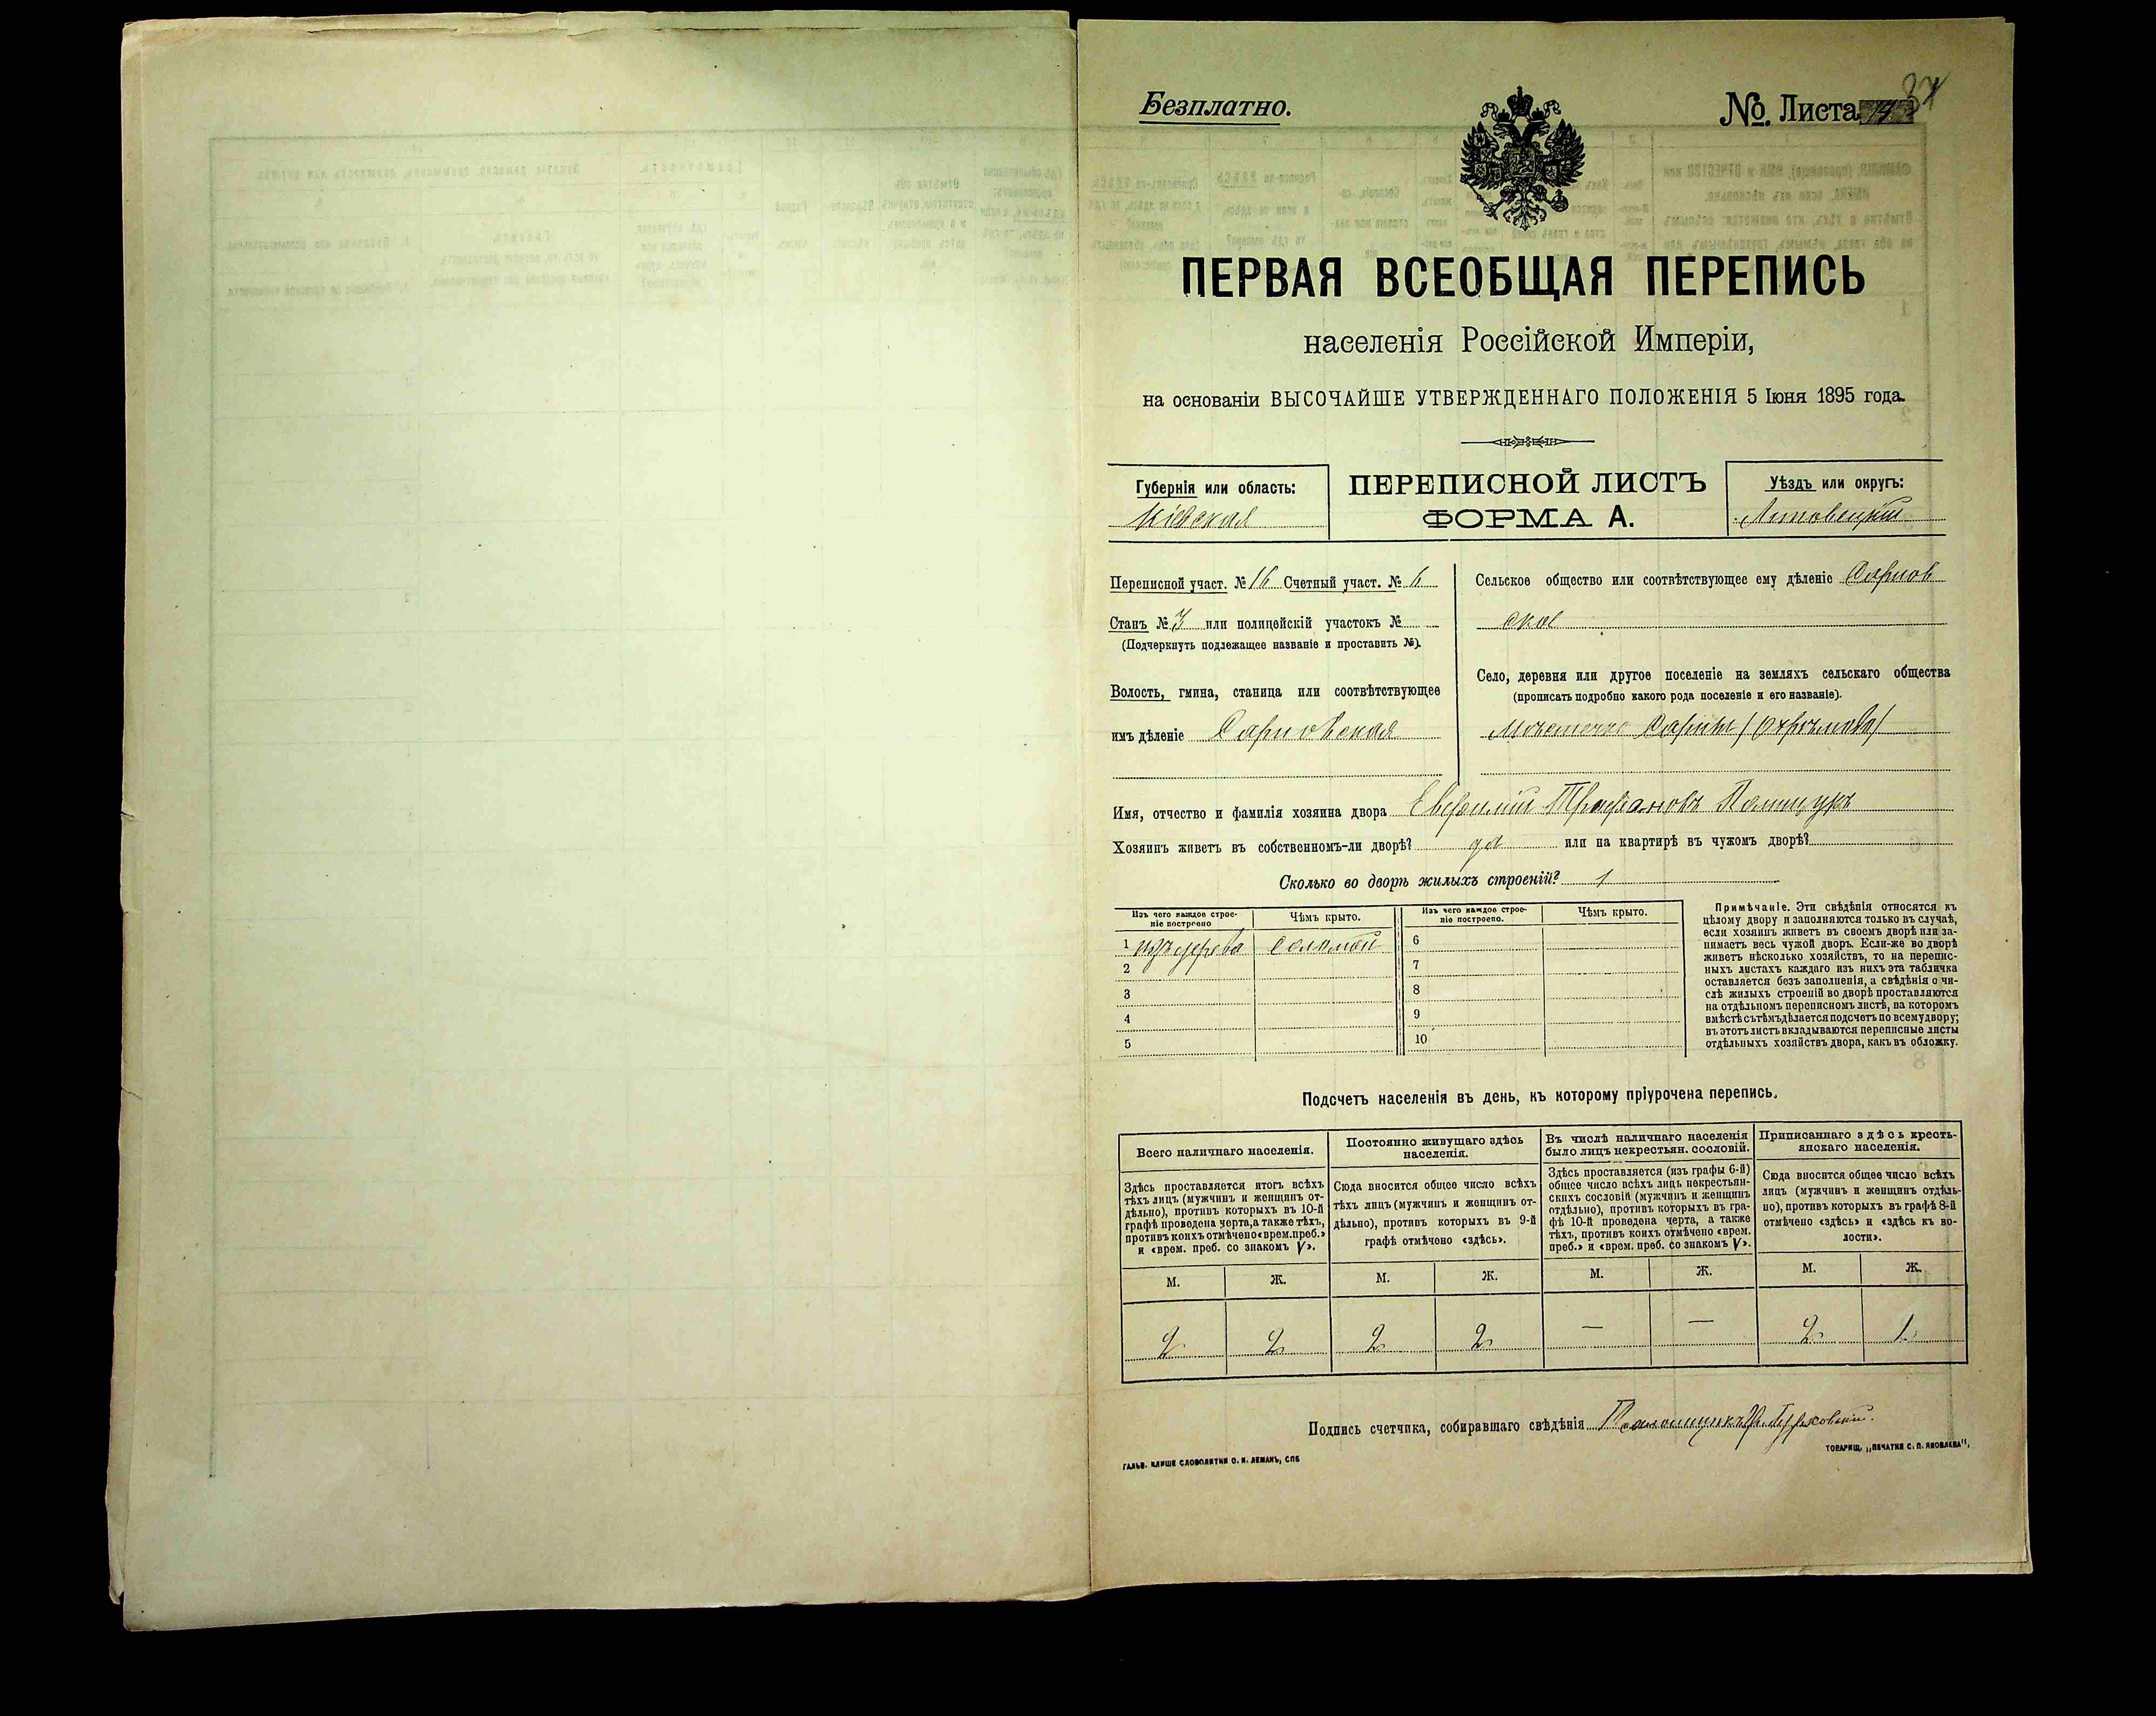 Безплатно.
№. Листа 37
ПЕРВАЯ ВСЕОБЩАЯ ПЕРЕПИСЬ
населенія Россійской Имперіи,
на основаніи ВЫСОЧАЙШЕ УТВЕРЖДЕННАГО ПОЛОЖЕНІЯ 5 Іюня 1895 года.
Губернія или область:
Кіевская
ПЕРЕПИСНОЙ ЛИСТЪ
ФОРМА А.
Уѣздъ или округъ:
Липовецкій
Переписной участ. № 16 Счетный участ. № 6
Станъ № 3 или полицейскій участокъ №
(Подчеркнуть подлежащее названіе и проставить №).
Волость, гмина, станица или соотвѣтствующее
имъ дѣленіе
Сельское общество или соотвѣтствующее ему дѣленіе
ское
Село, деревня или другое поселеніе на земляхъ сельскаго общества
(прописать подробно какого рода поселеніе и его названіе).
Мѣстечко
Имя, отчество и фамилія хозяина двора
Хозяинъ живетъ въ собственномъ-ли дворѣ? да или на квартирѣ въ чужомъ дворѣ?
Сколько во дворѣ жилыхъ строеній? 1
Изъ чего каждое строе-
ніе построено
Чѣмъ крыто.
Изъ чего каждое строе-
ніе построено.
Чѣмъ крыто.
1 изъ дерева соломой
2
3
4
5
6
7
8
9
10
Примѣчаніе. Эти свѣдѣнія относятся къ
цѣлому двору и заполняются только въ случаѣ,
если хозяинъ живетъ въ своемъ дворѣ или за-
нимаетъ весь чужой дворъ. Если-же во дворѣ
живетъ нѣсколько хозяйствъ, то на перепис-
ныхъ листахъ каждаго изъ нихъ эта табличка
оставляется безъ заполненія, а свѣдѣнія о чи-
слѣ жилыхъ строеній во дворѣ проставляются
на отдѣльномъ переписномъ листѣ, на которомъ
вмѣстѣ съ тѣмъ дѣлается подсчетъ по всему двору;
въ этотъ листъ вкладываются переписные листы
отдѣльныхъ хозяйствъ двора, какъ въ обложку.
Подсчетъ населенія въ день, къ которому пріурочена перепись.
Всего наличнаго населенія.
Здѣсь проставляется итогъ всѣхъ
тѣхъ лицъ (мужчинъ и женщинъ от-
дѣльно), противъ которыхъ въ 10-й
графѣ проведена черта, а также тѣхъ,
противъ коихъ отмѣчено «врем. преб.»
и «врем. преб. со знакомъ V».
Постоянно живущаго здѣсь
населенія.
Сюда вносится общее число всѣхъ
тѣхъ лицъ (мужчинъ и женщинъ от-
дѣльно), противъ которыхъ въ 9-й
графѣ отмѣчено «здѣсь».
Въ числѣ наличнаго населенія
было лицъ некрестьян. сословій.
Здѣсь проставляется (изъ графы 6-й)
общее число всѣхъ лицъ некрестьян-
скихъ сословій (мужчинъ и женщинъ
отдѣльно), противъ которыхъ въ гра-
фѣ 10-й проведена черта, а также
тѣхъ, противъ коихъ отмѣчено «врем.
преб.» и «врем. преб. со знакомъ V».
Приписаннаго здѣсь кресть-
янскаго населенія.
Сюда вносится общее число всѣхъ
лицъ (мужчинъ и женщинъ отдѣль-
но), противъ которыхъ въ графѣ 8-й
отмѣчено «здѣсь» и «здѣсь къ во-
лости».
М. Ж. М. Ж. М. Ж. М. Ж.
2 2 2 2 — — 2 1
Подпись счетчика, собиравшаго свѣдѣнія
ГАЛЬВ. КЛИШЕ СЛОВОЛИТНИ О. И. ЛЕМАНЪ, СПБ
ТОВАРИЩ. „ПЕЧАТНЯ С. П. ЯКОВЛЕВА",